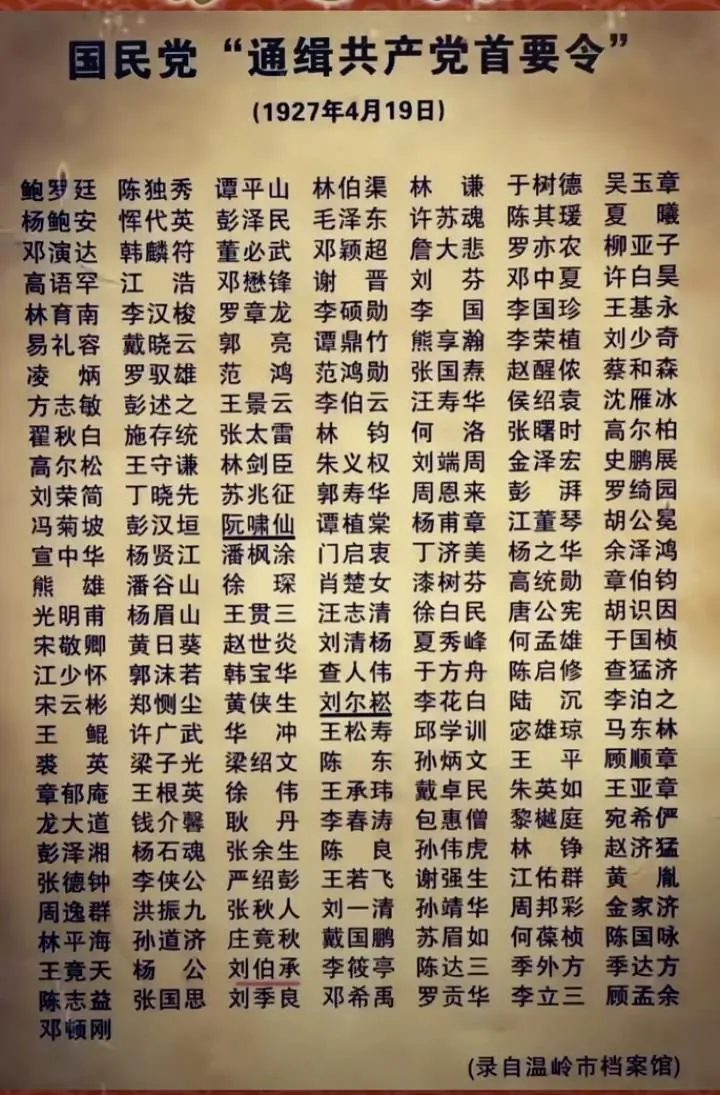 国民党“通缉共产党首要令”
(1927年4月19日)
鲍罗廷 陈独秀 谭平山 林伯渠 林谦 于树德 吴玉章
杨鲍安 恽代英 彭泽民 毛泽东 许苏魂 陈其瑗 夏曦
邓演达 韩麟符 董必武 邓颖超 詹大悲 罗亦农 柳亚子
高语罕 江浩 邓懋锋 谢晋 刘芬 邓中夏 许白昊
林育南 李汉梭 罗章龙 李硕勋 李国 李国珍 王基永
易礼容 戴晓云 郭亮 谭鼎竹 熊享瀚 李荣植 刘少奇
凌炳 罗驭雄 范鸿 范鸿勋 张国焘 赵醒侬 蔡和森
方志敏 彭述之 王景云 李伯云 汪寿华 侯绍袁 沈雁冰
翟秋白 施存统 张太雷 林钧 何洛 张曙时 高尔柏
高尔松 王守谦 林剑臣 朱义权 刘端周 金泽宏 史鹏展
刘荣简 丁晓先 苏兆征 郭寿华 周恩来 彭湃 罗绮园
冯菊坡 彭汉垣 阮啸仙 谭植棠 杨甫章 江董琴 胡公冕
宣中华 杨贤江 潘枫涂 门启衷 丁济美 杨之华 余泽鸿
熊雄 潘谷山 徐琛 肖楚女 漆树芬 高统勋 章伯钧
光明甫 杨眉山 王贯三 汪志清 徐白民 唐公宪 胡识因
宋敬卿 黄日葵 赵世炎 刘清杨 夏秀峰 何孟雄 于国桢
江少怀 郭沫若 韩宝华 查人伟 于方舟 陈启修 查猛济
宋云彬 郑恻尘 黄侠生 刘尔崧 李花白 陆沉 李泊之
王鲲 许广武 华冲 王松寿 邱学训 宓雄琼 马东林
裘英 梁子光 梁绍文 陈东 孙炳文 王平 顾顺章
章郁庵 王根英 徐伟 王承玮 戴卓民 朱英如 王亚章
龙大道 钱介馨 耿丹 李春涛 包惠僧 黎樾庭 宛希俨
彭泽湘 杨石魂 张余生 陈良 孙伟虎 林铮 赵济猛
张德钟 李侠公 严绍彭 王若飞 谢强生 江佑群 黄胤
周逸群 洪振九 张秋人 刘一清 孙靖华 周邦彩 金家济
林平海 孙道济 庄竟秋 戴国鹏 苏眉如 何葆桢 陈国咏
王竟天 杨公 刘伯承 李筱亭 陈达三 季外方 季达方
陈志益 张国思 刘季良 邓希禹 罗贡华 李立三 顾孟余
邓顿刚
(录自温岭市档案馆)